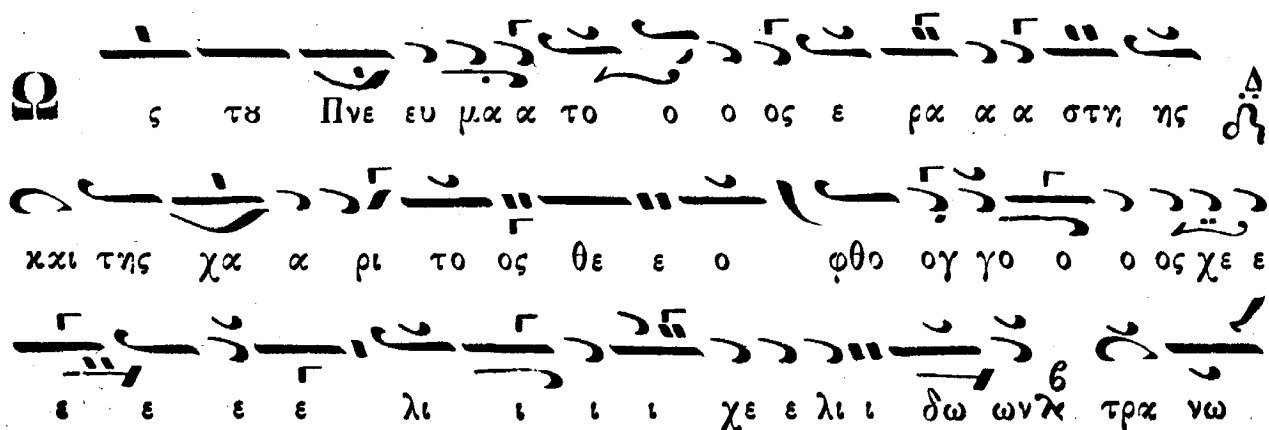 Ω ς τȣ Πνε ευ μα α το ο ο ος ε ρα α α στη ης Δ
και της χα α ρι το ος θε ε ο φθο ογ γο ο ο ος χε ε
ε ε ε ε λι ι ι ι χε ε λι ι δω ων τρα νω